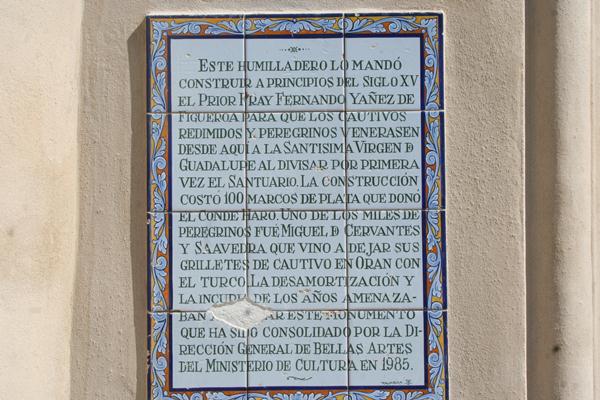 ESTE HUMILLADERO LO MANDÓ
CONSTRUIR A PRINCIPIOS DEL SIGLO XV
EL PRIOR FRAY FERNANDO YAÑEZ DE
FIGUEROA PARA QUE LOS CAUTIVOS
REDIMIDOS Y PEREGRINOS VENERASEN
DESDE AQUÍ A LA SANTISIMA VIRGEN D
GUADALUPE AL DIVISAR POR PRIMERA
VEZ EL SANTUARIO. LA CONSTRUCCIÓN
COSTÓ 100 MARCOS DE PLATA QUE DONÓ
EL CONDE HARO. UNO DE LOS MILES DE
PEREGRINOS FUÉ MIGUEL D CERVANTES
Y SAAVEDRA QUE VINO A DEJAR SUS
GRILLETES DE CAUTIVO EN ORAN CON
EL TURCO. LA DESAMORTIZACIÓN Y
LA INCURIA DE LOS AÑOS AMENAZA-
BAN AR ESTE MONUMENTO
QUE HA SIDO CONSOLIDADO POR LA DI-
RECCIÓN GENERAL DE BELLAS ARTES
DEL MINISTERIO DE CULTURA EN 1985.